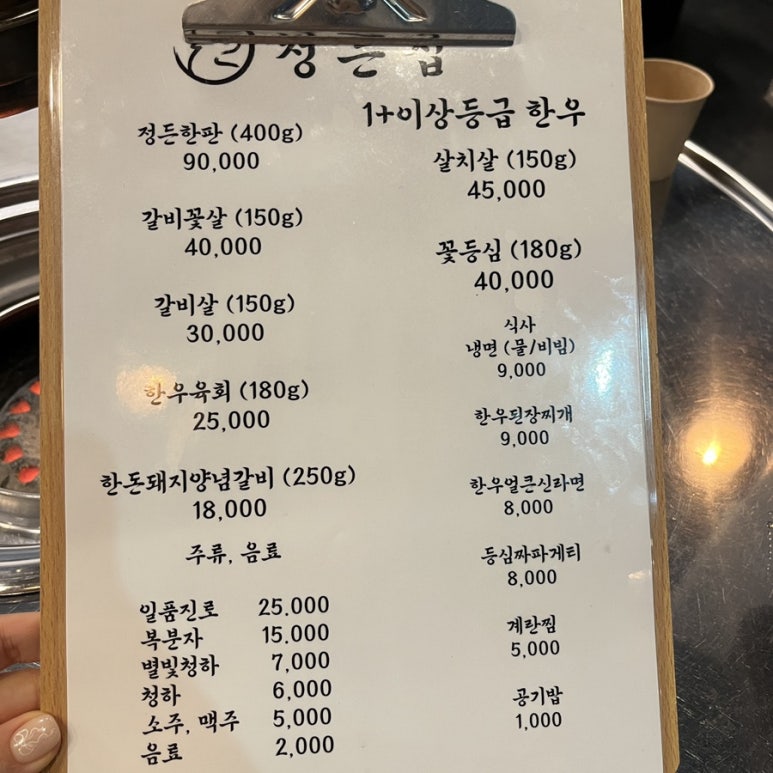 정든집
정든한판 (400g)
90,000
갈비꽃살 (150g)
40,000
갈비살 (150g)
30,000
한우육회 (180g)
25,000
한돈돼지양념갈비 (250g)
18,000
주류, 음료
일품진로 25.000
복분자 15.000
별빛청하 7,000
청하 6,000
소주, 맥주 5,000
음료 2,000
1+이상등급 한우
살치살 (150g)
45,000
꽃등심 (180g)
40,000
식사
냉면 (물/비빔)
9,000
한우된장찌개
9,000
한우얼큰신라면
8,000
등심짜파게티
8,000
계란찜
5,000
공기밥
1,000